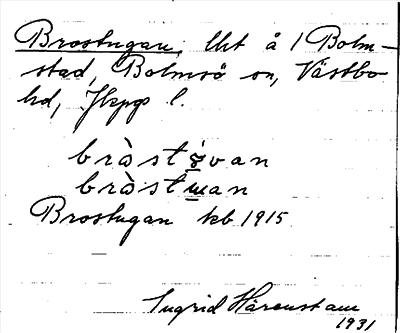 Brostugan, lht å 1 Bolm-
stad, Bolmsö sn, Västbo
hd, Jkpgs l.
bràstøvan
bràstwan
Brostugan kb 1915
Ingrid Härenstam
1931